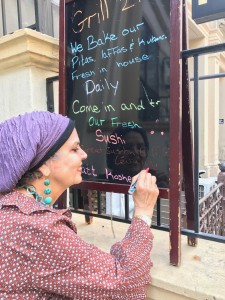 Grill
We Bake our
Pitas, laffas & Kubanas
Fresh in house
Daily
Come in and tr
Our Fresh
Sushi
att Kosher